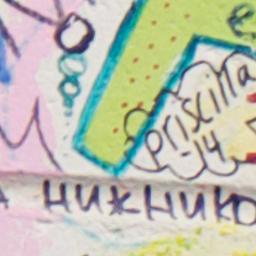 priscilla
-14
НИЖНИКО